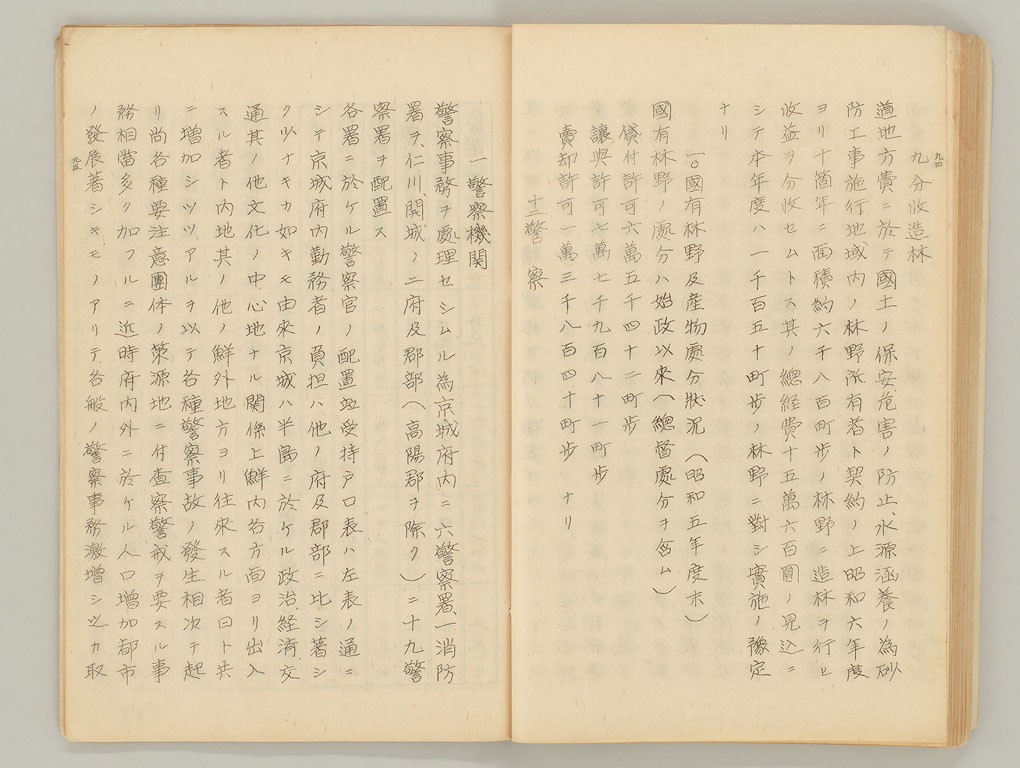 九四
九 分收造林
道地方費ニ於テ國土ノ保安危害ノ防止、水源涵養ノ為砂
防工事施行地域内ノ林野所有者ト契約ノ上昭和六年度
ヨリ十箇年ニ面積約六千八百町歩ノ林野ニ造林ヲ行ヒ
收益ヲ分收セムトス其ノ總経費十五萬六百圓ノ見込ニ
シテ本年度ハ一千百五十町歩ノ林野ニ對シ實施ノ豫定
ナリ
一〇國有林野及産物處分狀況（昭和五年度末）
國有林野ノ處分ハ始政以來（總督處分ヲ含ム）
貸付許可六萬五千四十二町歩
讓與許可七萬七千九百八十一町歩
賣却許可一萬三千八百四十町歩 ナリ
十二警 察
一 警察機関
警察事務ヲ處理セシムル為京城府内ニ六警察署一消防
署ヲ、仁川、開城ノ二府及郡部（高陽郡ヲ除ク）ニ十九警
察署ヲ配置ス
各署ニ於ケル警察官ノ配置竝受持戸口表ハ左表ノ通ニ
シテ京城府内勤務者ノ負担ハ他ノ府及郡部ニ比シ著シ
ク少ナキカ如キモ由來京城ハ半島ニ於ケル政治、経済、交
通其ノ他文化ノ中心地ナル関係上鮮内各方面ヨリ出入
スル者ト内地其ノ他ノ鮮外地方ヨリ往來スル者日ト共
ニ増加シツツアルヲ以テ各種警察事故ノ發生相次テ起
リ尚各種要注意團体ノ策源地ニ付査察警戒ヲ要スル事
務相當多ク加フルニ近時府内外ニ於ケル人口増加都市
ノ發展著シキモノアリテ各般ノ警察事務激増シ之カ取
九五